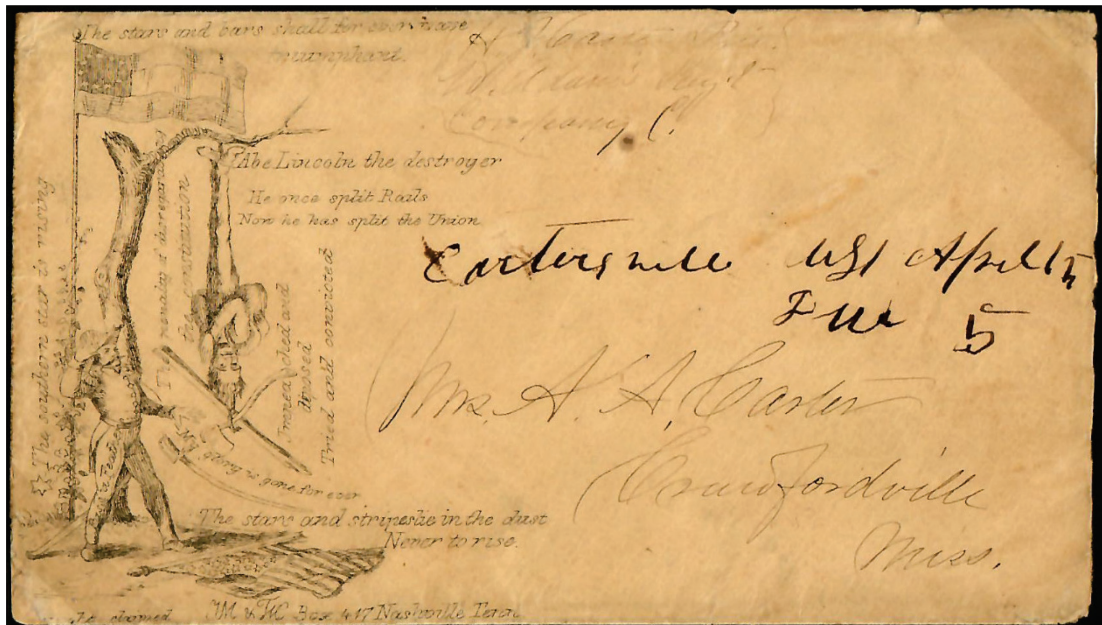 The stars and bars shall for ever wave
triumphant.
Company C.
Abe Lincoln the destroyer
He once split Rails
Now he has split the Union
The southern star is rising
The penalty of disregarding
the constitution
Impeached and
deposed
Tried and convicted
My glory is gone for ever
The stars and stripes lie in the dust
Never to rise.
Box 417 Nashville Tenn
Cartersville April 15
5
Mrs. A. A. Carter
Crawfordville
Miss.